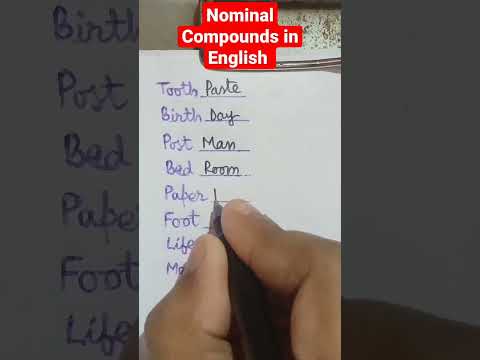 Nominal
Compounds in
English
Tooth Paste
Birth Day
Post Man
Bed Room
Paper
Foot
Life